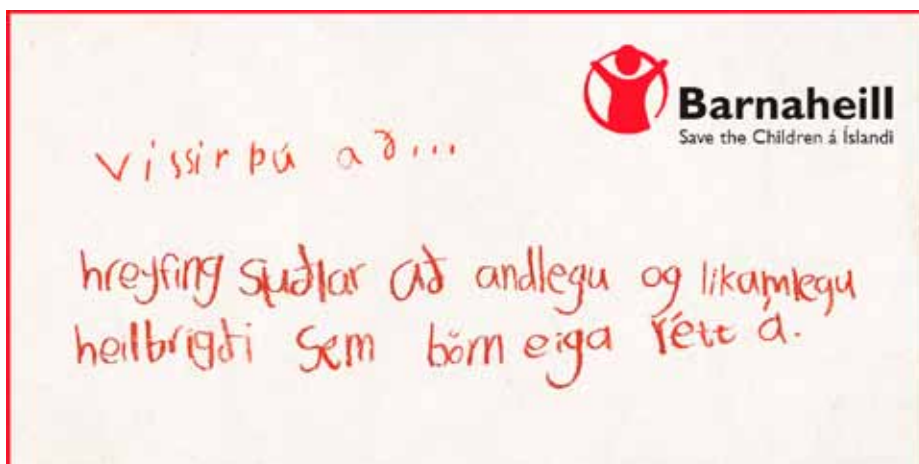 Barnaheill
Save the Children á Íslandi
vissir þú að...
hreyfing stuðlar að andlegu og líkamlegu
heilbrigði sem börn eiga rétt á.